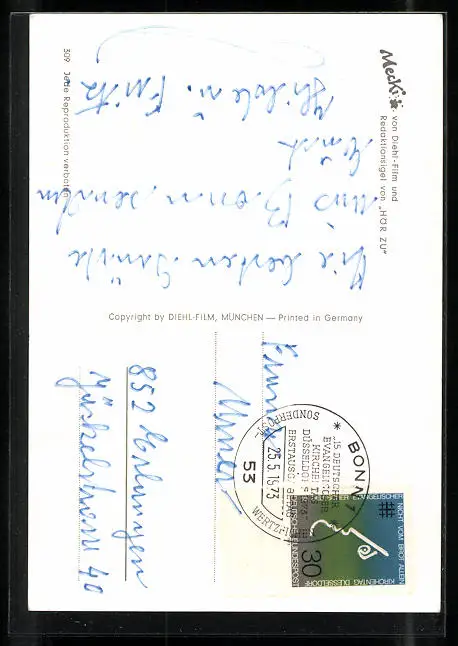 Mecki
von Diehl-Film und
Redaktionsigel von „HÖR ZU"
Die besten Grüße
aus Bonn senden
Euch
u. Fritz
309 Jede Reproduktion verboten
Copyright by DIEHL-FILM, MÜNCHEN — Printed in Germany
852 Erlangen
40
* BONN 1
15 DEUTSCHER
EVANGELISCHER
KIRCHENTAG
DÜSSELDORF 1973
ERSTAUSGABE
25.5.1973
53
SONDERPOST
WERTZEICHEN
NICHT VOM BROT ALLEIN
KIRCHENTAG DÜSSELDORF
DEUTSCHE BUNDESPOST
30